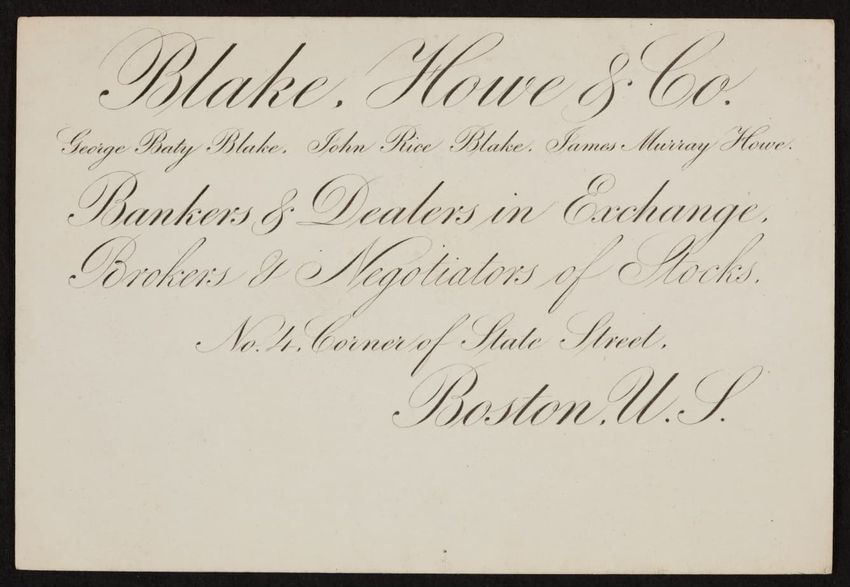 Blake, Howe & Co.
George Baty Blake, John Rice Blake, James Murray Howe.
Bankers & Dealers in Exchange,
Brokers & Negotiators of Stocks,
No. 4, Corner of State Street,
Boston, U. S.